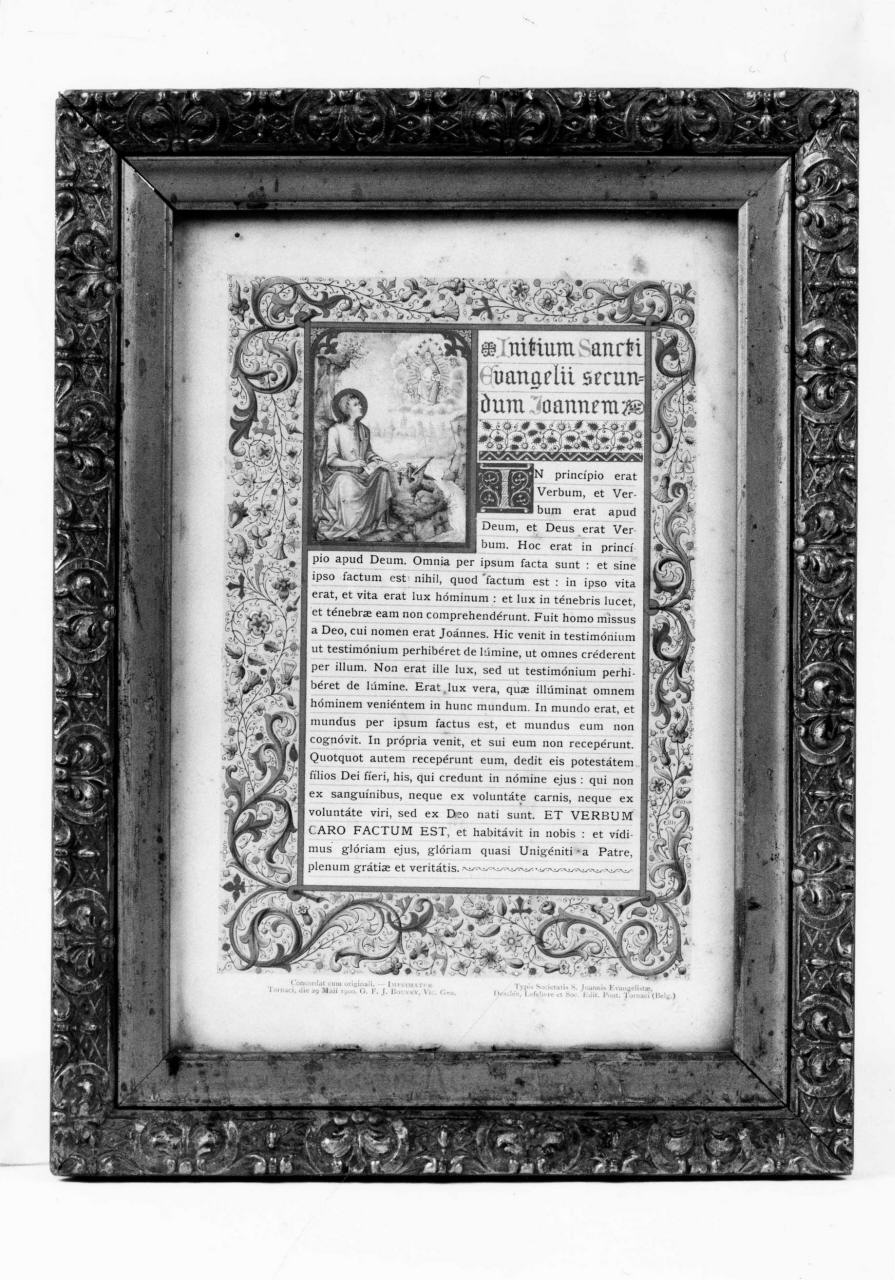 Initium Sancti
Evangelii secun-
dum Joannem
IN princípio erat
Verbum, et Ver-
bum erat apud
Deum, et Deus erat Ver-
bum. Hoc erat in princí-
pio apud Deum. Omnia per ipsum facta sunt : et sine
ipso factum est nihil, quod factum est : in ipso vita
erat, et vita erat lux hóminum : et lux in ténebris lucet,
et ténebræ eam non comprehendérunt. Fuit homo missus
a Deo, cui nomen erat Joánnes. Hic venit in testimónium
ut testimónium perhibéret de lúmine, ut omnes créderent
per illum. Non erat ille lux, sed ut testimónium perhi-
béret de lúmine. Erat lux vera, quæ illúminat omnem
hóminem veniéntem in hunc mundum. In mundo erat, et
mundus per ipsum factus est, et mundus eum non
cognóvit. In própria venit, et sui eum non recepérunt.
Quotquot autem recepérunt eum, dedit eis potestátem
fílios Dei fíeri, his, qui credunt in nómine ejus : qui non
ex sanguínibus, neque ex voluntáte carnis, neque ex
voluntáte viri, sed ex Deo nati sunt. ET VERBUM
CARO FACTUM EST, et habitávit in nobis : et vídi-
mus glóriam ejus, glóriam quasi Unigéniti a Patre,
plenum grátiæ et veritátis.
Concordat cum originali. — IMPRIMATUR
Tornaci, die 29 Maii 1900. G. F. J. BOUVRY, Vic. Gen.
Typis Societatis S. Joannis Evangelistæ,
Desclée, Lefebvre et Soc. Edit. Pont. Tornaci (Belg.)